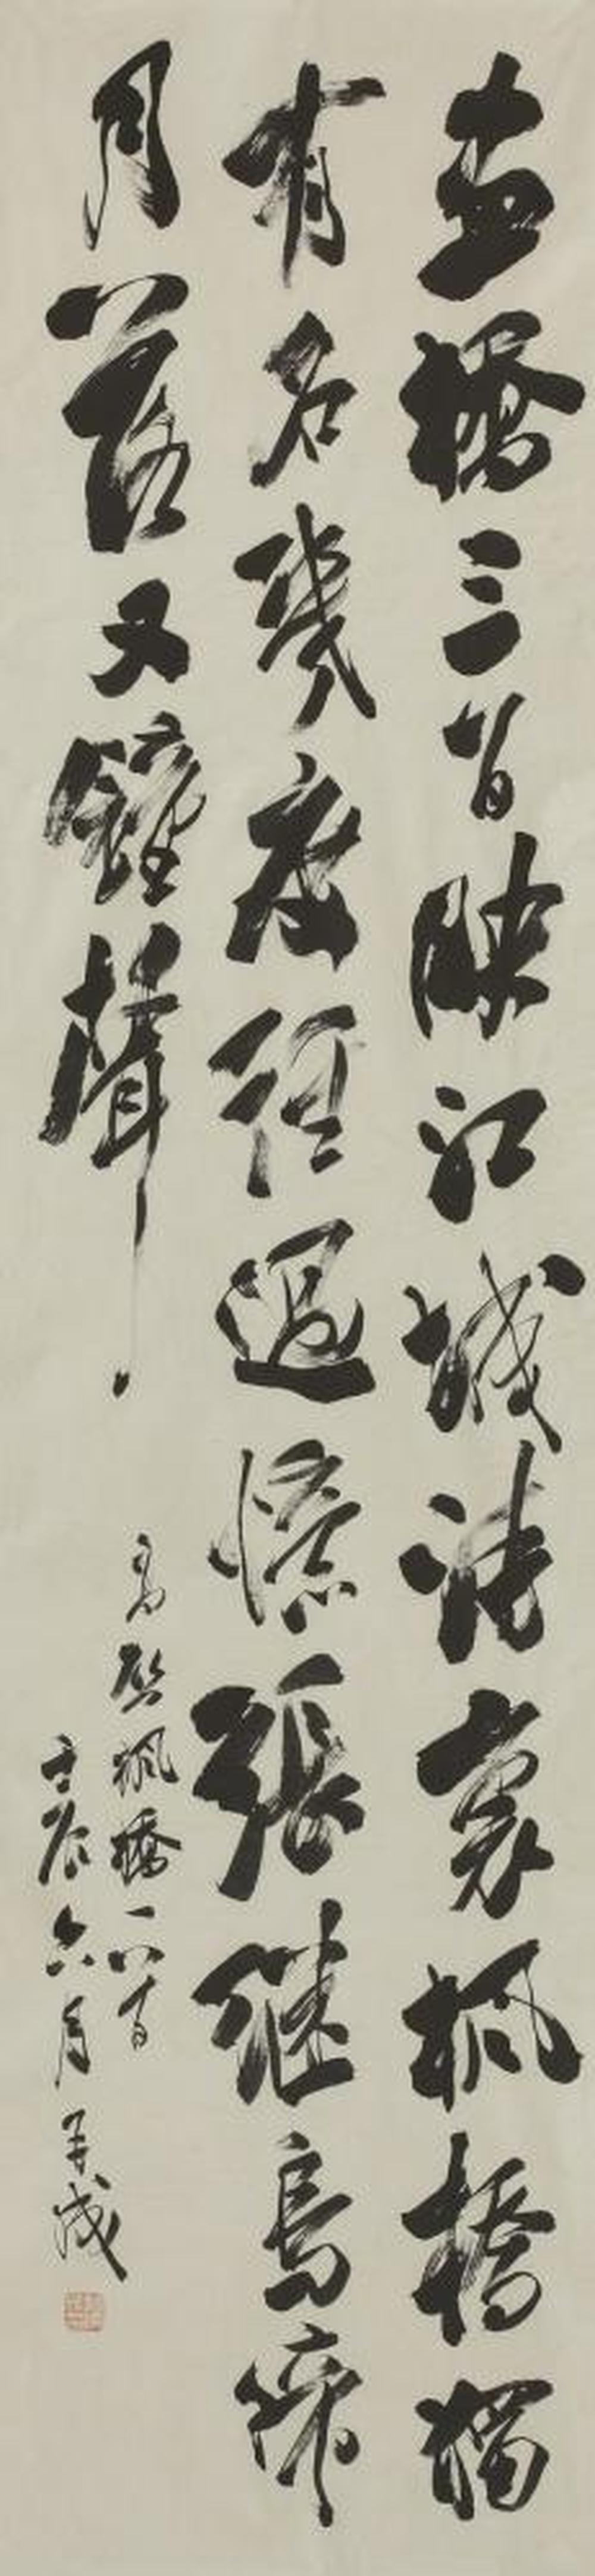 畫橋三百映江城詩裏楓橋獨
有名幾度經過憶張繼烏啼
月落又鐘聲
高啟楓橋一首
壬辰六月 成